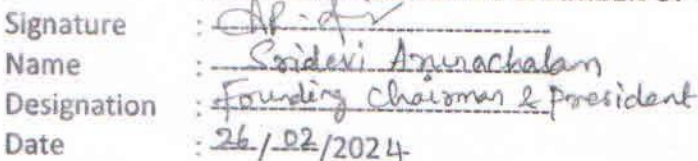 Signature :
Name : Sridevi Arunachalam
Designation : Founding Chairman & President
Date : 26/02/2024